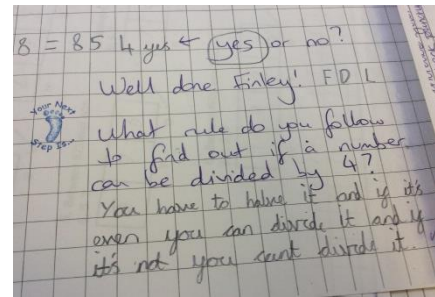 8 = 85 4 yes ← yes or no?
Well done Finley! F D L
Your Next Step Is...
What rule do you follow
to find out if a number
can be divided by 4?
You have to halve it and if it's
even you can divide it and if
it's not you cant divide it.